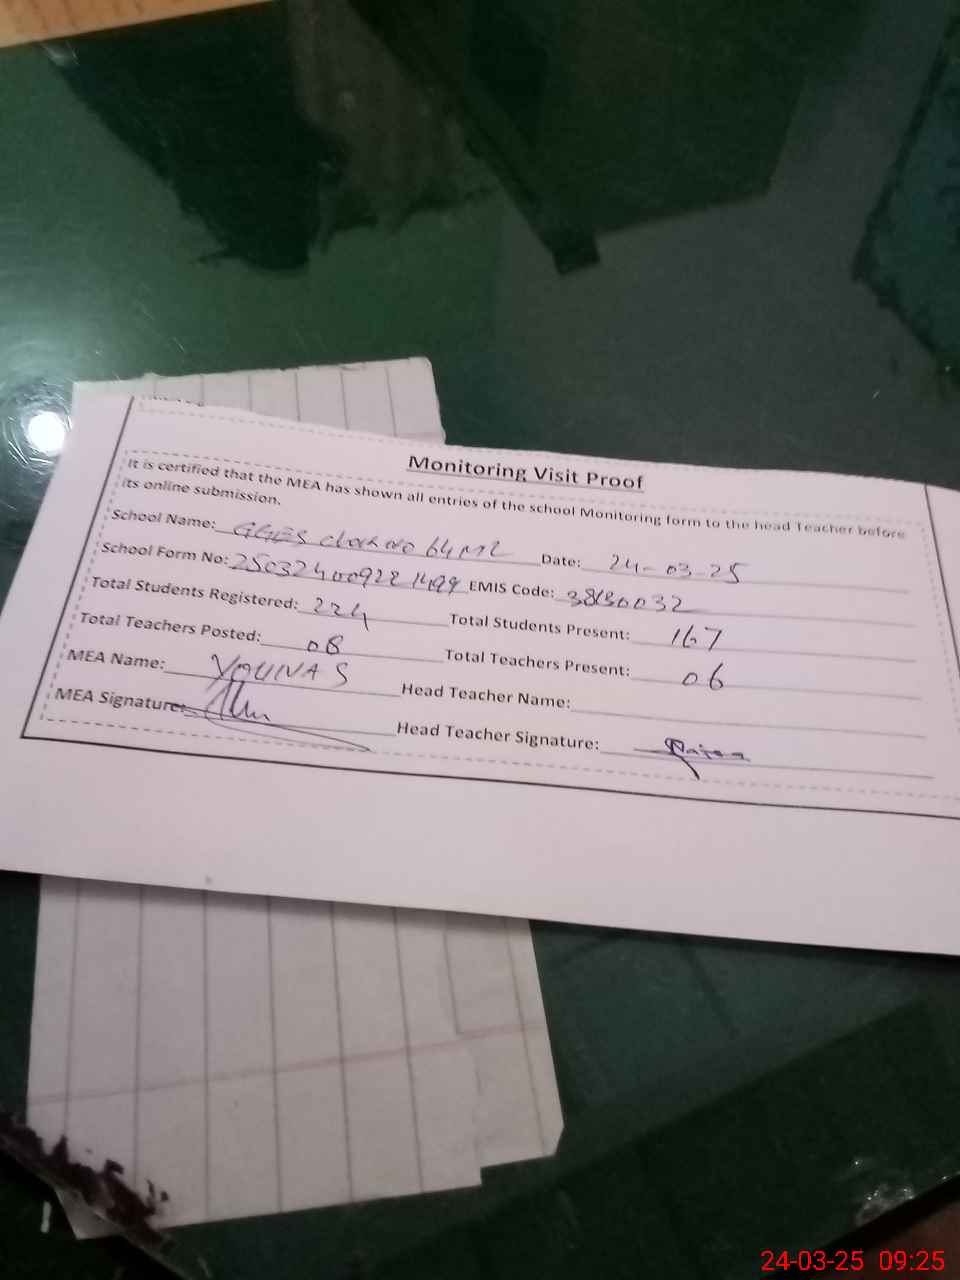 Monitoring Visit Proof
It is certified that the MEA has shown all entries of the school Monitoring form to the head Teacher before
its online submission.
School Name: GGES 64 M2 Date: 24-03-25
School Form No: 250324009221499 EMIS Code: 38130032
Total Students Registered: 224 Total Students Present: 167
Total Teachers Posted: 08 Total Teachers Present: 06
MEA Name: YOUNAS Head Teacher Name:
MEA Signature: Head Teacher Signature:
24-03-25 09:25